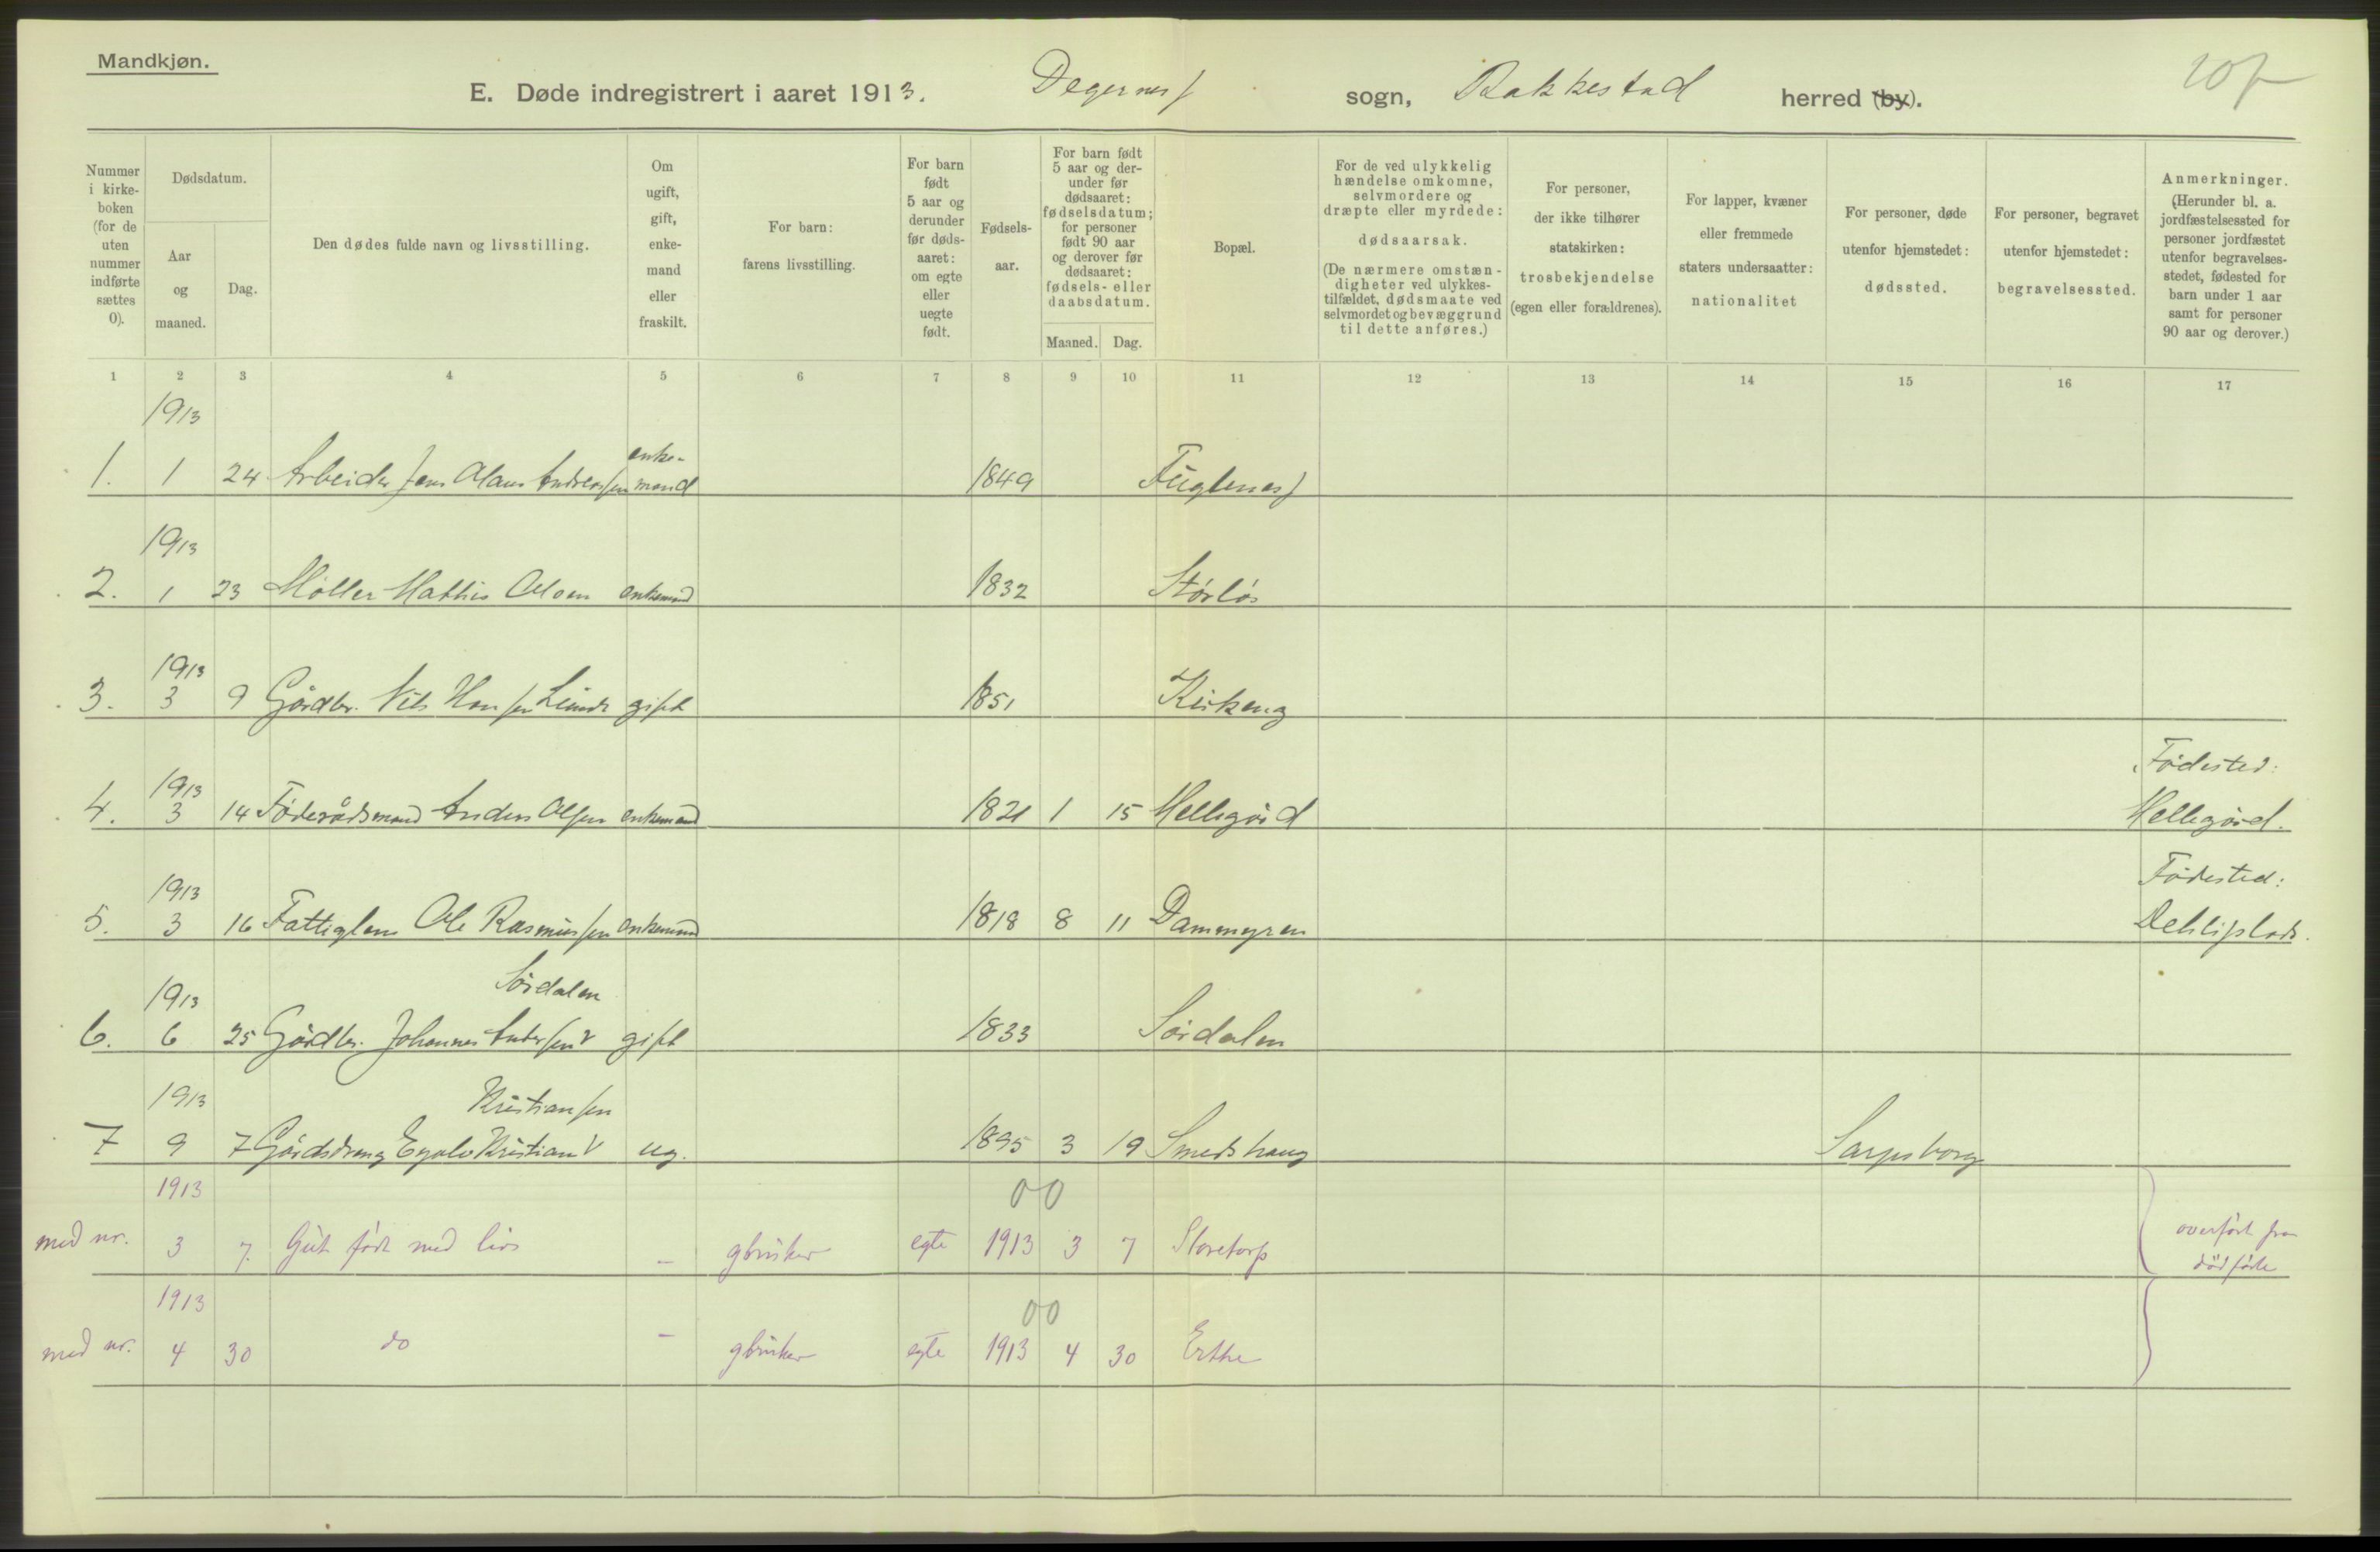 Mandkjøn.
E. Døde indregistrert i aaret 1913. Degernes sogn, Rakkestad herred (by).
Nummer i kirke-boken (for de uten nummer indførte sættes 0).
Dødsdatum.
Aar og maaned.
Dag.
Den dødes fulde navn og livsstilling.
Om ugift, gift, enke-mand eller fraskilt.
For barn: farens livsstilling.
For barn født 5 aar og derunder før døds-aaret: om egte eller uegte født.
Fødsels-aar.
For barn født 5 aar og der-under før dødsaaret: fødselsdatum; for personer født 90 aar og derover før dødsaaret: fødsels- eller daabsdatum.
Maaned. Dag.
Bopæl.
For de ved ulykkelig hændelse omkomne, selvmordere og dræpte eller myrdede: dødsaarsak. (De nærmere omstæn-digheter ved ulykkes-tilfældet, dødsmaate ved selvmordet og bevæggrund til dette anføres.)
For personer, der ikke tilhører statskirken: trosbekjendelse (egen eller forældrenes).
For lapper, kvæner eller fremmede staters undersaatter: nationalitet
For personer, døde utenfor hjemstedet: dødssted.
For personer, begravet utenfor hjemstedet: begravelsessted.
Anmerkninger. (Herunder bl. a. jordfæstelsessted for personer jordfæstet utenfor begravelses-stedet, fødested for barn under 1 aar samt for personer 90 aar og derover.)
1 2 3 4 5 6 7 8 9 10 11 12 13 14 15 16 17
1913
1. 1 24 Arbeider Jens Olaus Anderssen enke-mand 1849 Fuglenes
1913
2. 1 23 Møller Mathis Olsen enkemand 1832
1913
3. 3 9 Gårdbr. Nils Hanssen gift 1851 Kirkeng
1913 Fødested:
4. 3 14 Føderådsmand Anders Olsen enkemand 1821 1 15 Hellegård Hellegård.
1913 Fødested:
5. 3 16 Fattiglem Ole Rasmussen enkemand 1818 8 11 Dammyren
1913 Sørdalen
6. 6 25 Gårdbr. Johannes Anderssen gift 1833 Sørdalen
1913 Kristianssen
7 9 7 Gårdsdreng Kristian ug. 1895 3 19 Smedshaug Sarpsborg
1913 00
med nr. 3 7. Gut født med liv — gbruker egte 1913 3 7 Storetorp overført fra
dødfødte
1913 00
med nr. 4 30 do — gbruker egte 1913 4 30 Erthe